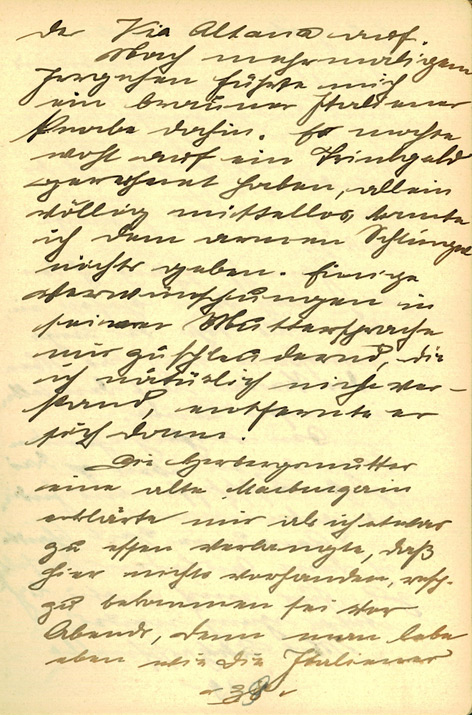 der Via Altana auf.
Nach mehrmaligem
Irrgehen führte mich
ein brauner Italiener
Knabe dahin. Er mochte
wohl auf ein Trinkgeld
gerechnet haben, allein
völlig mittellos, konnte
ich dem armen Schlingel
nichts geben. Einige
Verwünschungen in
seiner Muttersprache
mir zuschleudernd, die
ich natürlich nicht ver-
stand, entfernte er
sich dann.
Die Herbergsmutter
eine alte
erklärte mir als ich etwas
zu essen verlangte, daß
hier nichts vorhanden, resp.
zu bekommen sei vor
Abends, denn man lebe
eben wie die Italiener